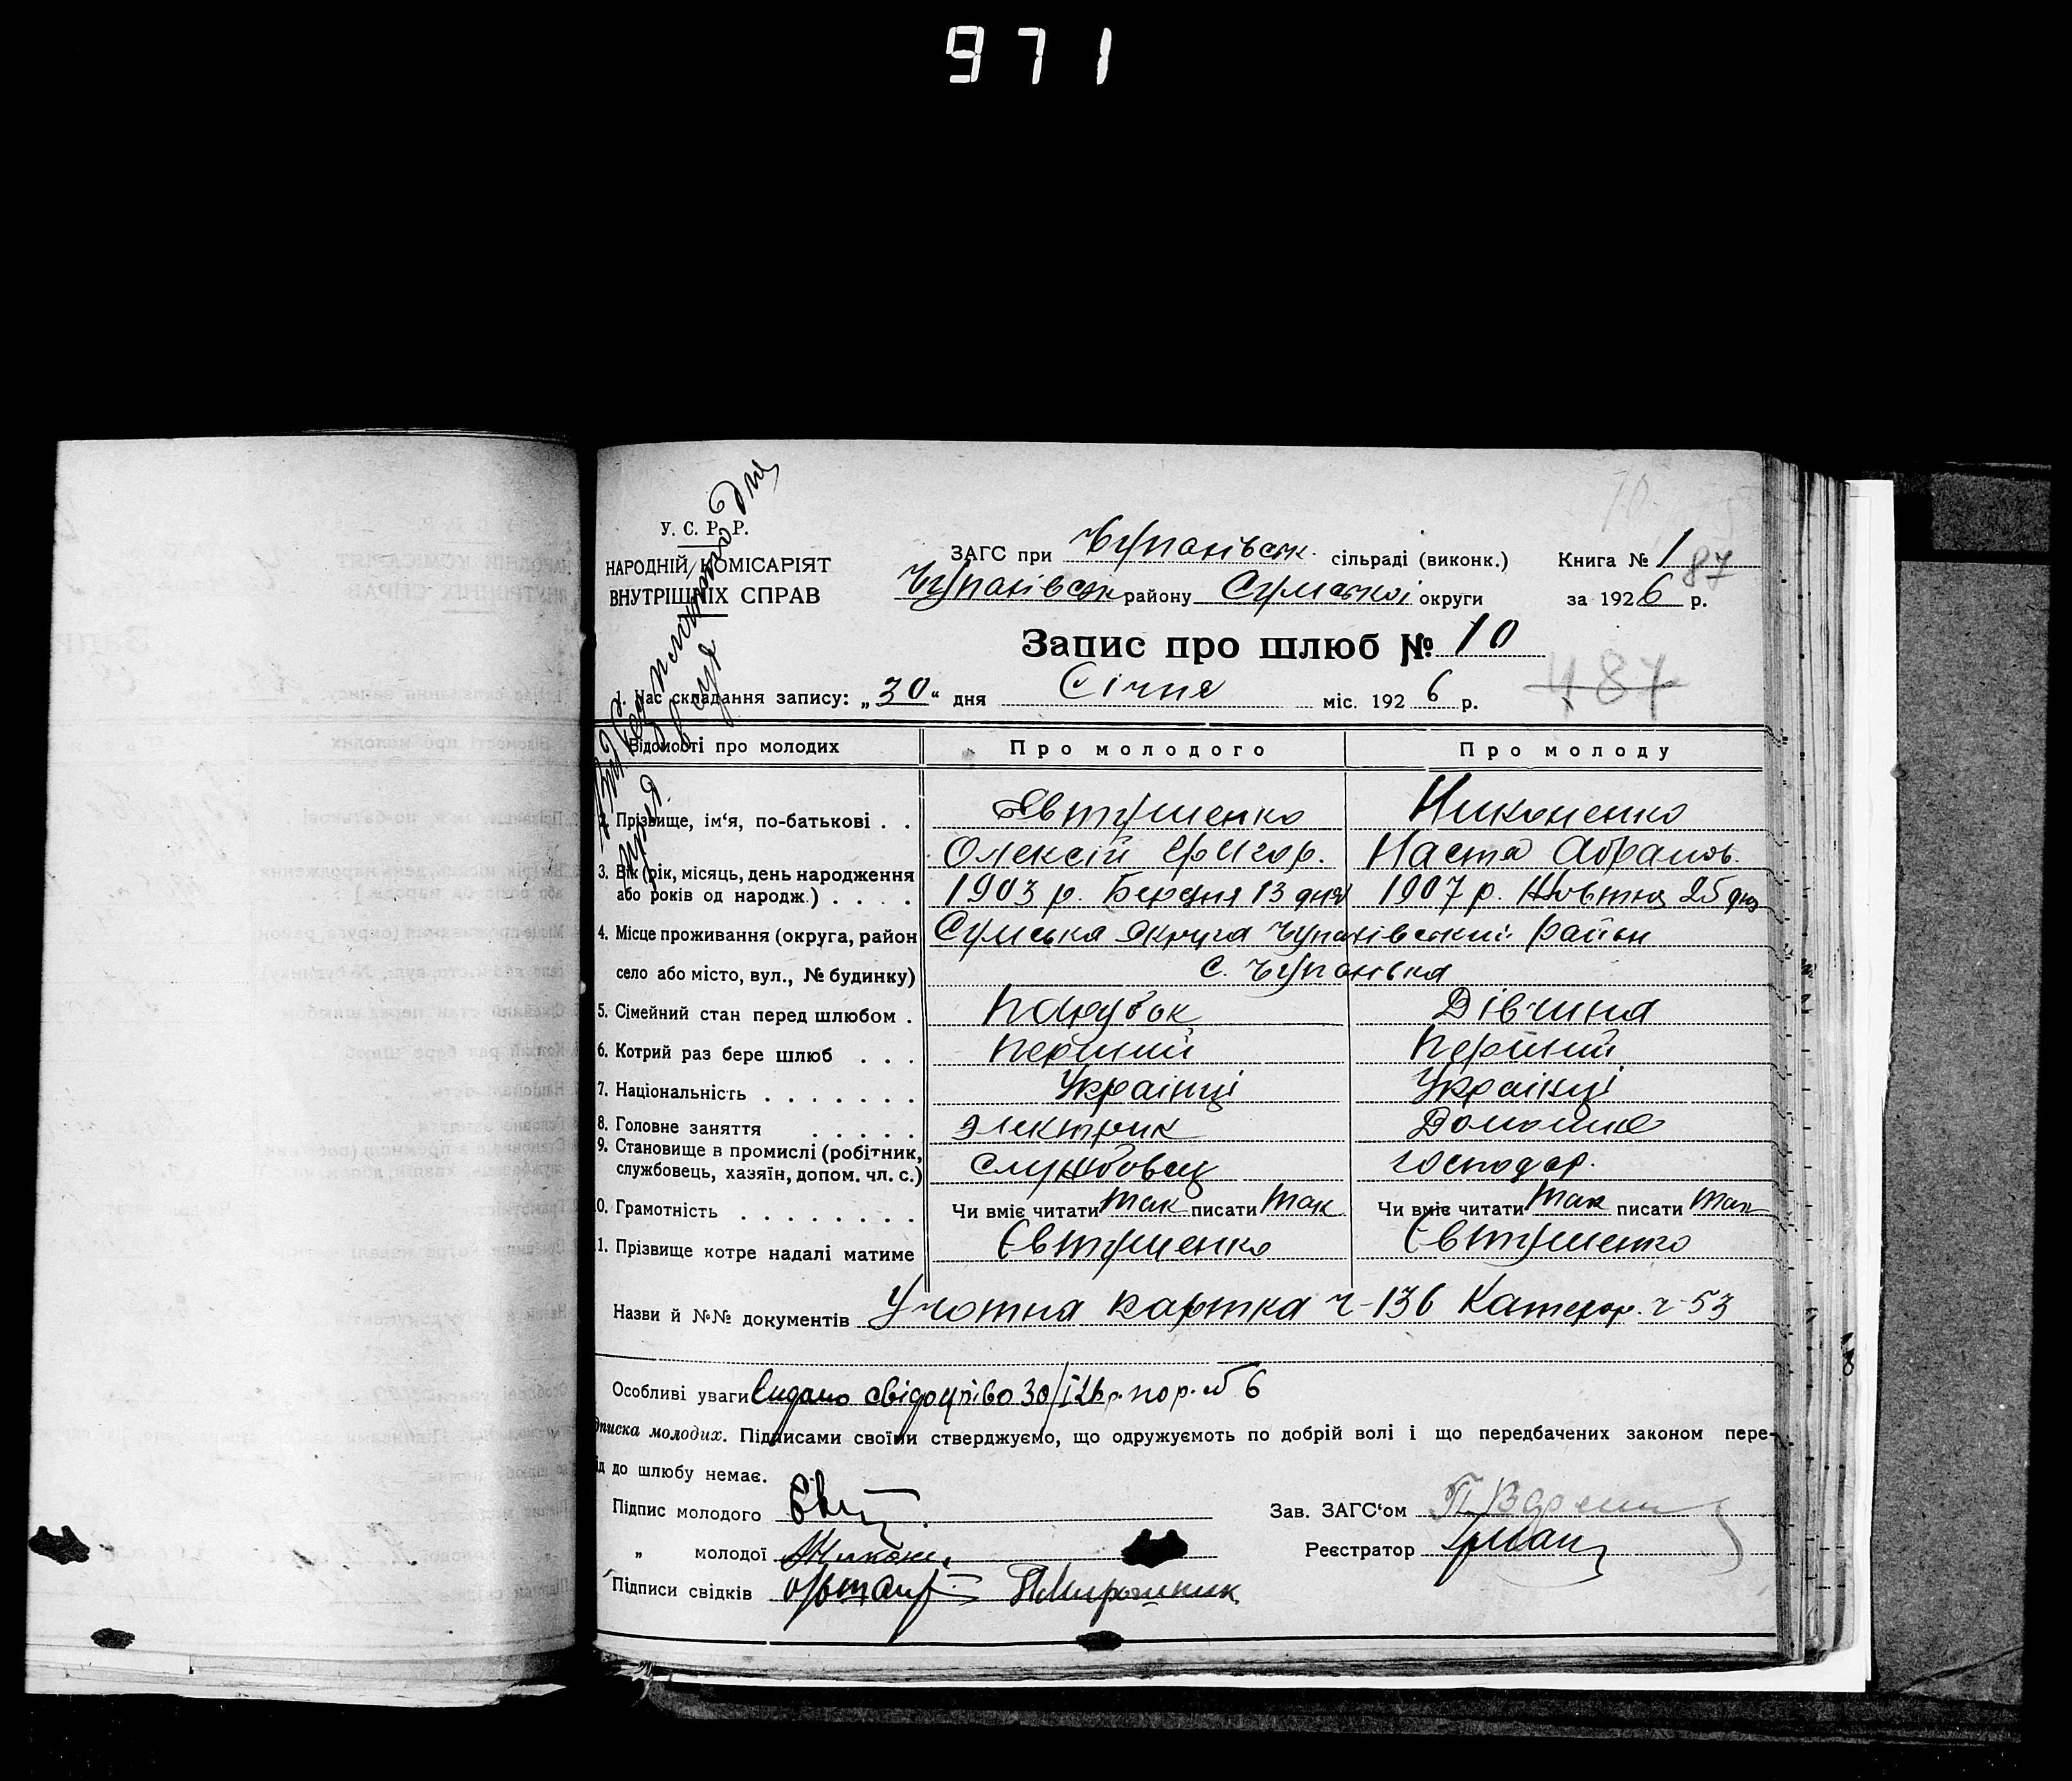 971
У. С. Р. Р.
НАРОДНІЙ КОМІСАРІЯТ
ВНУТРІШНІХ СПРАВ
ЗАГС при Чупахівськ. сільраді (виконк.)
Чупахівськ району Сумської округи
Книга № 1
87
за 1926 р.
Запис про шлюб № 10
487
1. Час складання запису: „30“ дня Січня міс. 1926 р.
Відомості про молодих Про молодого Про молоду
2. Прізвище, ім‘я, по-батькові . . Явтушенко Никоненко
Олексій Григор. Настя Абрамов.
3. Вік (рік, місяць, день народження
або років од народж.) . . . . 1903 р. Березня 13 дня 1907 р. Жовтня 25 дня
4. Місце проживання (округа, район Сумська Округа Чупахівський район
село або місто, вул., № будинку) с. Чупахівка
5. Сімейний стан перед шлюбом . Парубок Дівчина
6. Котрий раз бере шлюб . . . Перший Перший
7. Національність . . . . . . . Українці Українці
8. Головне заняття . . . . . Электрик Домашнє
9. Становище в промислі (робітник,
службовець, хазяїн, допом. чл. с.) Службовец господар.
0. Грамотність . . . . . . . . Чи вміє читати Так писати Так Чи вміє читати Так писати Так
1. Прізвище котре надалі матиме Євтушенко Євтушенко
Назви й №№ документів Учотна картка ч-136 Категор. ч-53
Особливі уваги Видано свідоцтво 30/I 26 р. по р. № 6
дписка молодих. Підписами своїми стверджуємо, що одружуємоть по добрій волі і що передбачених законом пере-
ід до шлюбу немає.
Підпис молодого Євт
Зав. ЗАГС‘ом
„ молодої Никоне.
Реєстратор
Підписи свідків П Мирошник